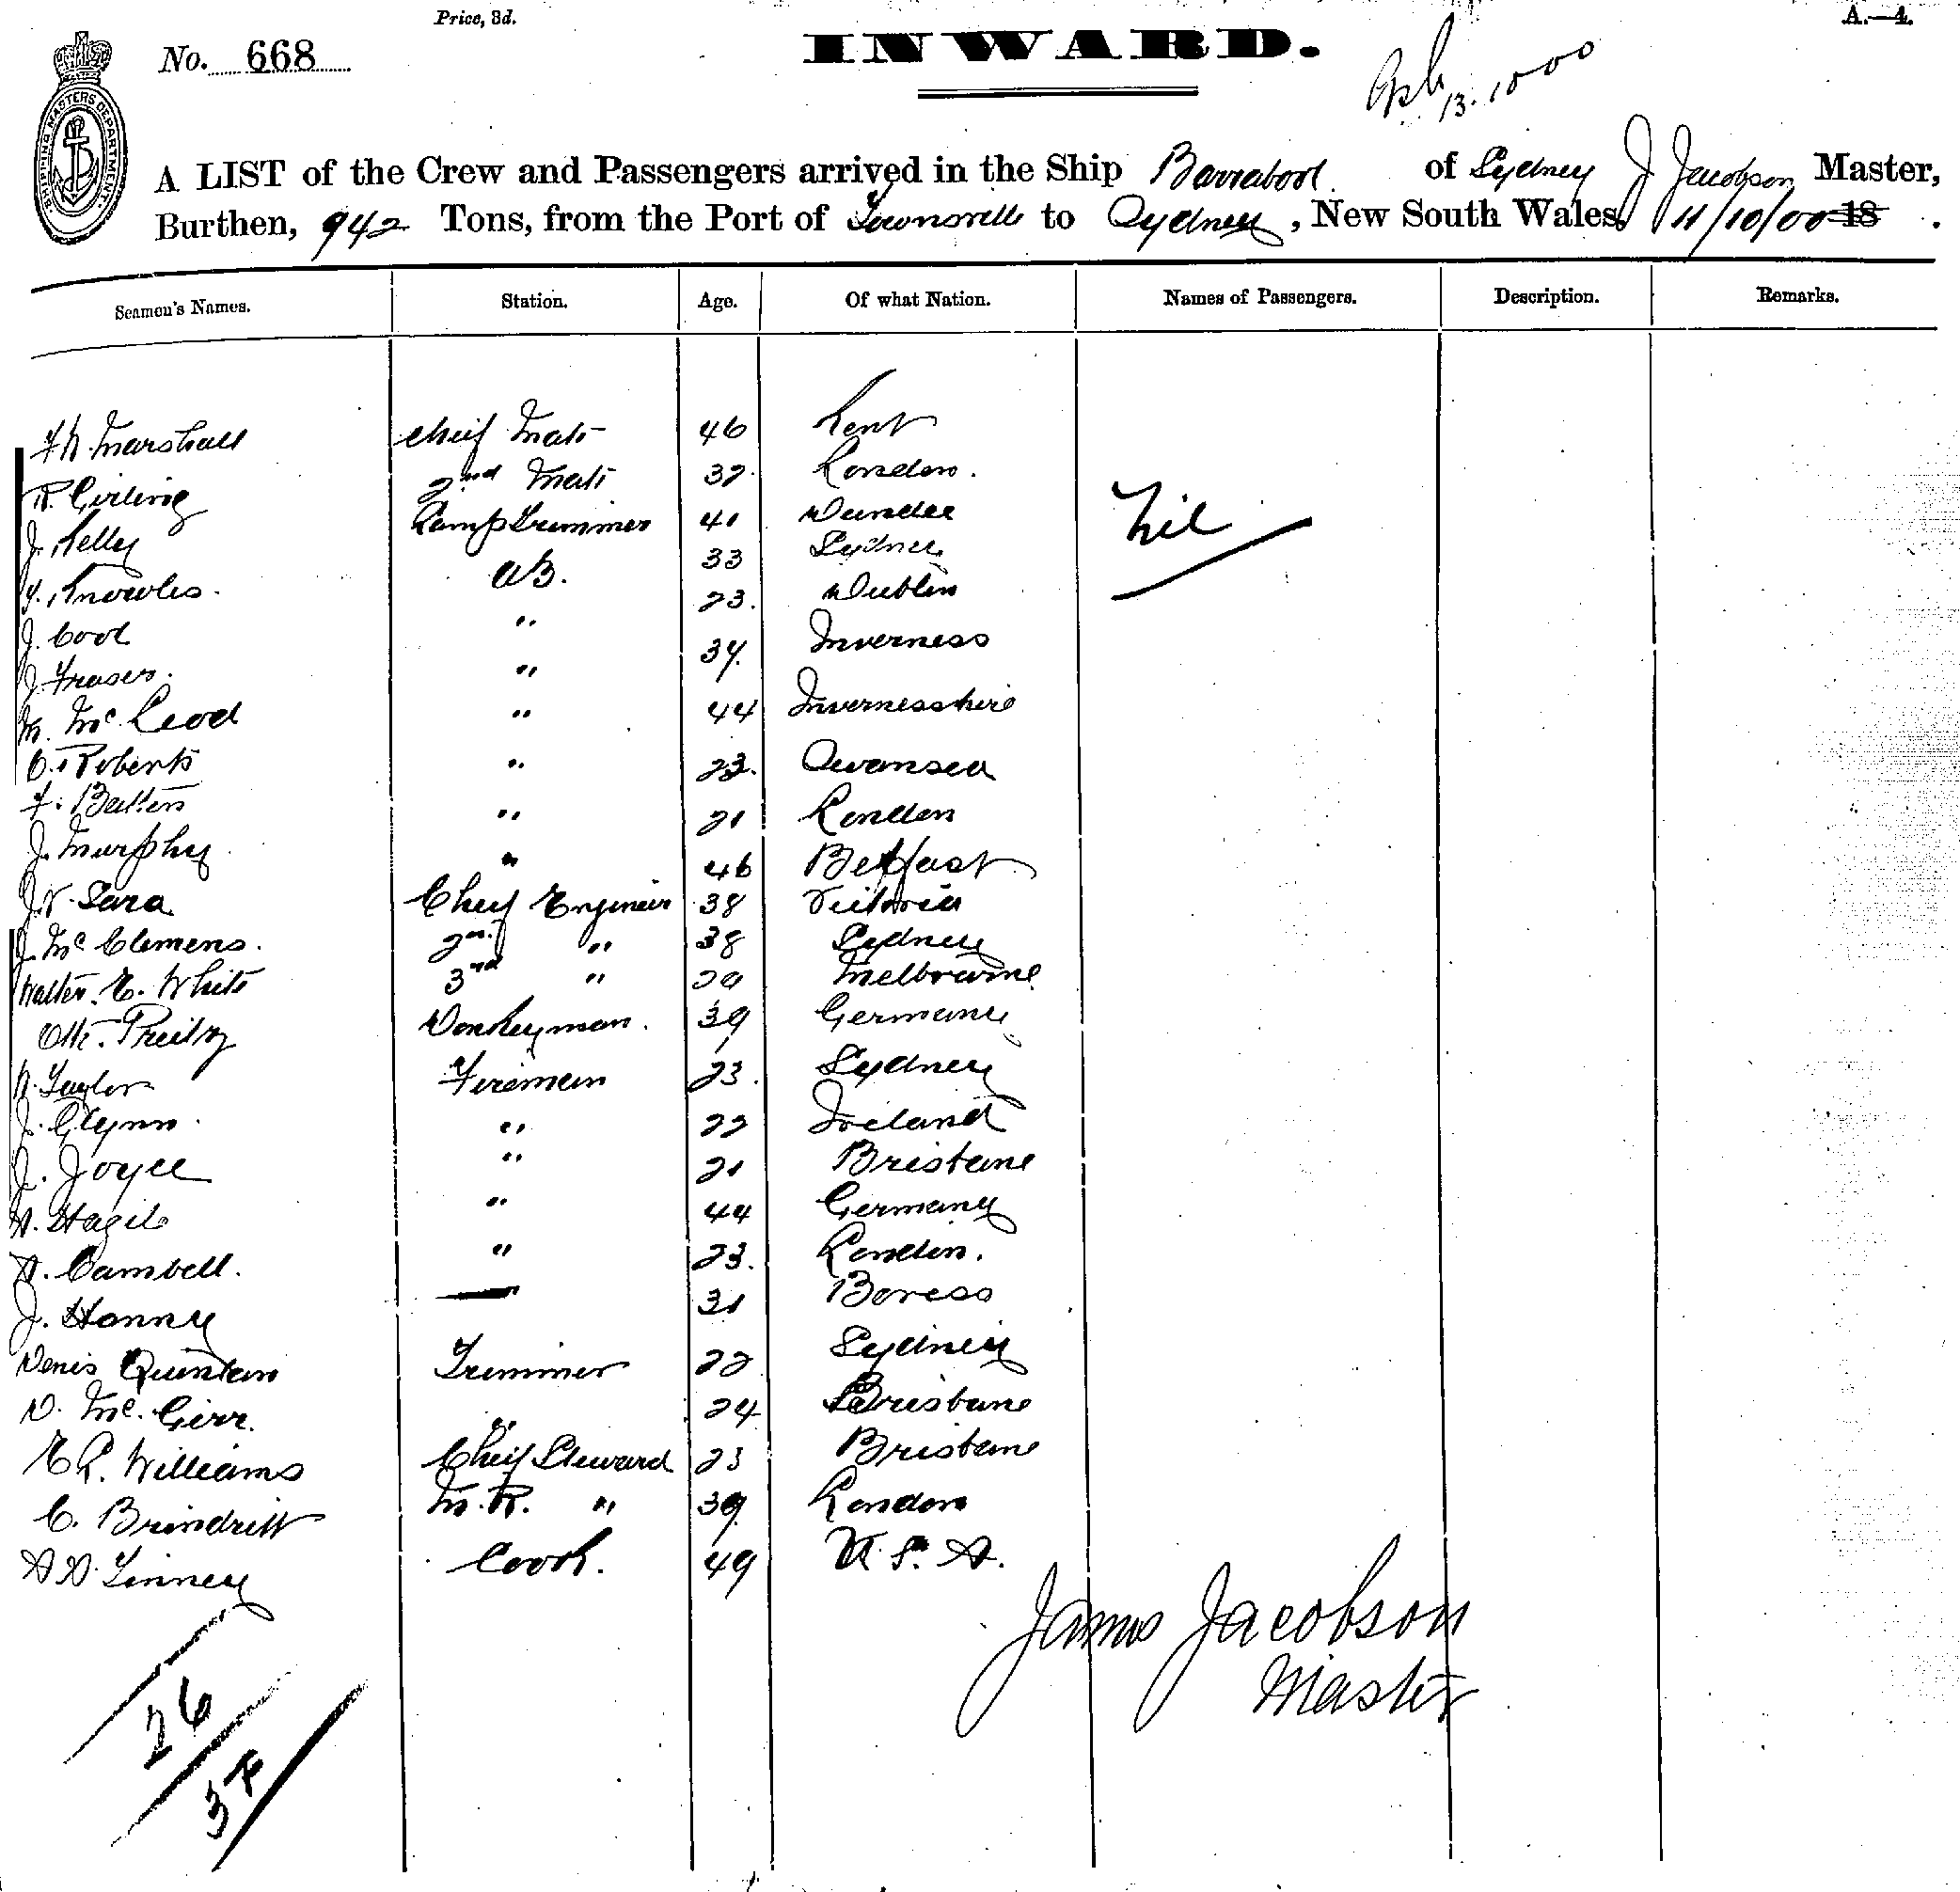 Price, 3d.
A.—4.
No. 668
INWARD.
SHIPPING MASTERS DEPARTMENT.
13. 1000
A LIST of the Crew and Passengers arrived in the Ship Barrabool of Sydney J Jacobson Master,
Burthen, 942 Tons, from the Port of Townsville to Sydney, New South Wales, 11/10/00 18 .
Seamen's Names. Station. Age. Of what Nation. Names of Passengers. Description. Remarks.
Marshall Chief Mate 46 Kent
R. Girling 2nd Mate 32 London.
J. Kelly Lamp Trimmer 41 Dundee
Nil
Knowles. AB. 33 Sydney
J. Cool " 23. Dublin
J. Fraser. " 34. Inverness
M. McLeod " 44 Invernesshire
C. Roberts " 22. Swansea
F. Batten " 21 London
J. Murphy " 46 Belfast
Sara Chief Engineer 38 Victoria
J. McClemens. 2nd " 38 Sydney
Walter. E. White 3rd " 29 Melbourne
Donkeyman. 39 Germany
Taylor Fireman 23. Sydney
J. Glynn " 22 Ireland
J. Joyce " 21 Brisbane
" 44 Germany
Cambell. " 23. London.
J. Hanny — 31
Denis Quinlan Trimmer 22 Sydney
D. McGirr. " 24 Brisbane
E R. Williams Chief Steward 23 Brisbane
C. Brindritt M. R. " 39 London
Tinney Cook. 49 U. S. A.
James Jacobson
Master
26